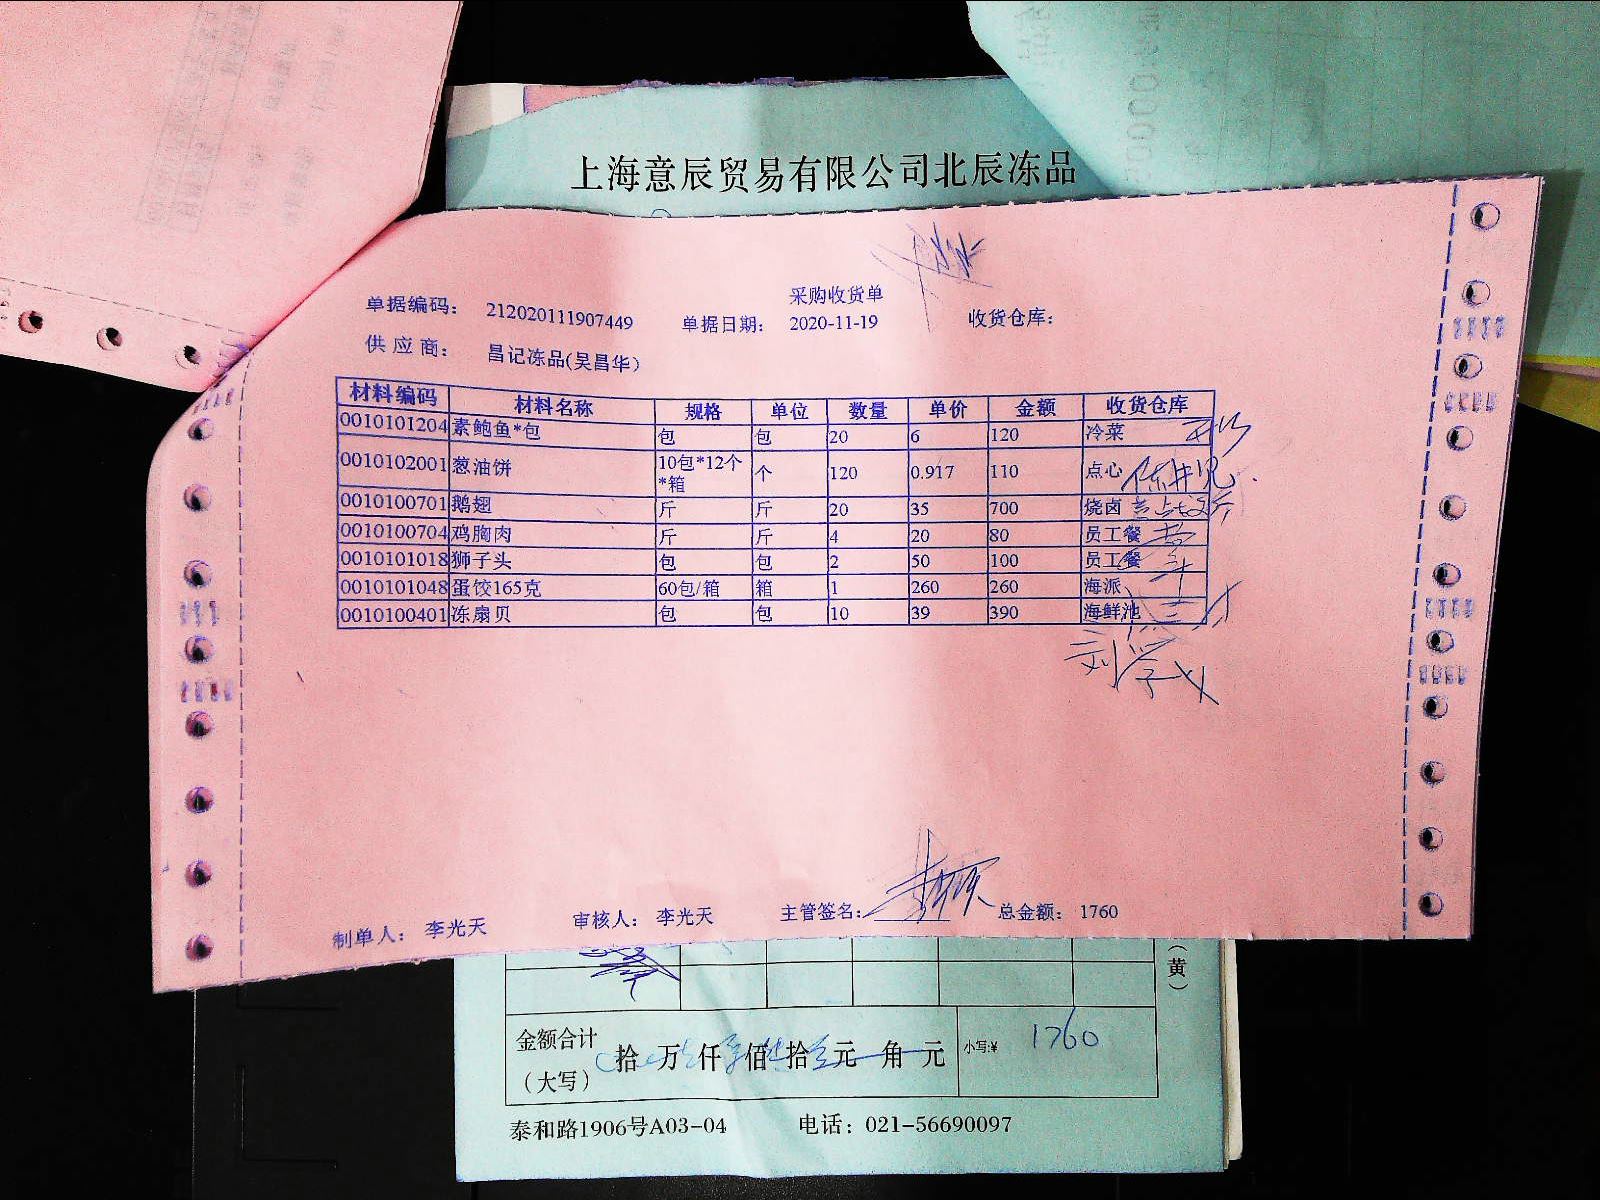 上海意辰贸易有限公司北辰冻品
采购收货单
单据编码： 212020111907449 单据日期： 2020-11-19 收货仓库：
供 应 商： 昌记冻品(吴昌华)
材料编码 材料名称 规格 单位 数量 单价 金额 收货仓库
0010101204 素鲍鱼*包 包 包 20 6 120 冷菜
0010102001 葱油饼 10包*12个*箱 个 120 0.917 110 点心
0010100701 鹅翅 斤 斤 20 35 700 烧卤
0010100704 鸡胸肉 斤 斤 4 20 80 员工餐
0010101018 狮子头 包 包 2 50 100 员工餐
0010101048 蛋饺165克 60包/箱 箱 1 260 260 海派
0010100401 冻扇贝 包 包 10 39 390 海鲜池
制单人： 李光天 审核人： 李光天 主管签名： 总金额： 1760
（黄）
金额合计（大写） 拾 万 仟 佰 拾 元 角 元 小写:¥ 1760
泰和路1906号A03-04 电话：021-56690097